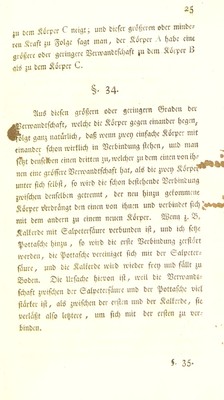 25
zu dem Körper C neigt; und dieser größeren oder minde-
ren Kraft zu Folge sagt man, der Körper A habe eine
größere oder geringere Verwandschaft zu dem Körper B
als zu dem Körper C.
§. 34.
Aus diesen größern oder geringern Graden der
Verwandschaft, welche die Körper gegen einander hegen,
folgt ganz natürlich, daß wenn zwey einfache Körper mit
einander schon wirklich in Verbindung stehen, und man
setzt denselben einen dritten zu, welcher zu dem einen von ih-
nen eine größere Verwandschaft hat, als die zwey Körper
unter sich selbst, so wird die schon bestehende Verbindung
zwischen denselben getrennt, der neu hinzu gekommene
Körper verdrängt den einen von ihnen und verbindet sich
mit dem andern zu einem neuen Körper. Wenn z. B.
Kalkerde mit Salpetersäure verbunden ist, und ich setze
Pottasche hinzu, so wird die erste Verbindung zerstört
werden, die Pottasche vereiniget sich mit der Salpeter-
säure, und die Kalkerde wird wieder frey und fällt zu
Boden. Die Ursache hievon ist, weil die Verwand-
schaft zwischen der Salpetersäure und der Pottasche viel
stärker ist, als zwischen der ersten und der Kalkerde, sie
verläßt also letztere, um sich mit der ersten zu ver-
binden.
§. 35.